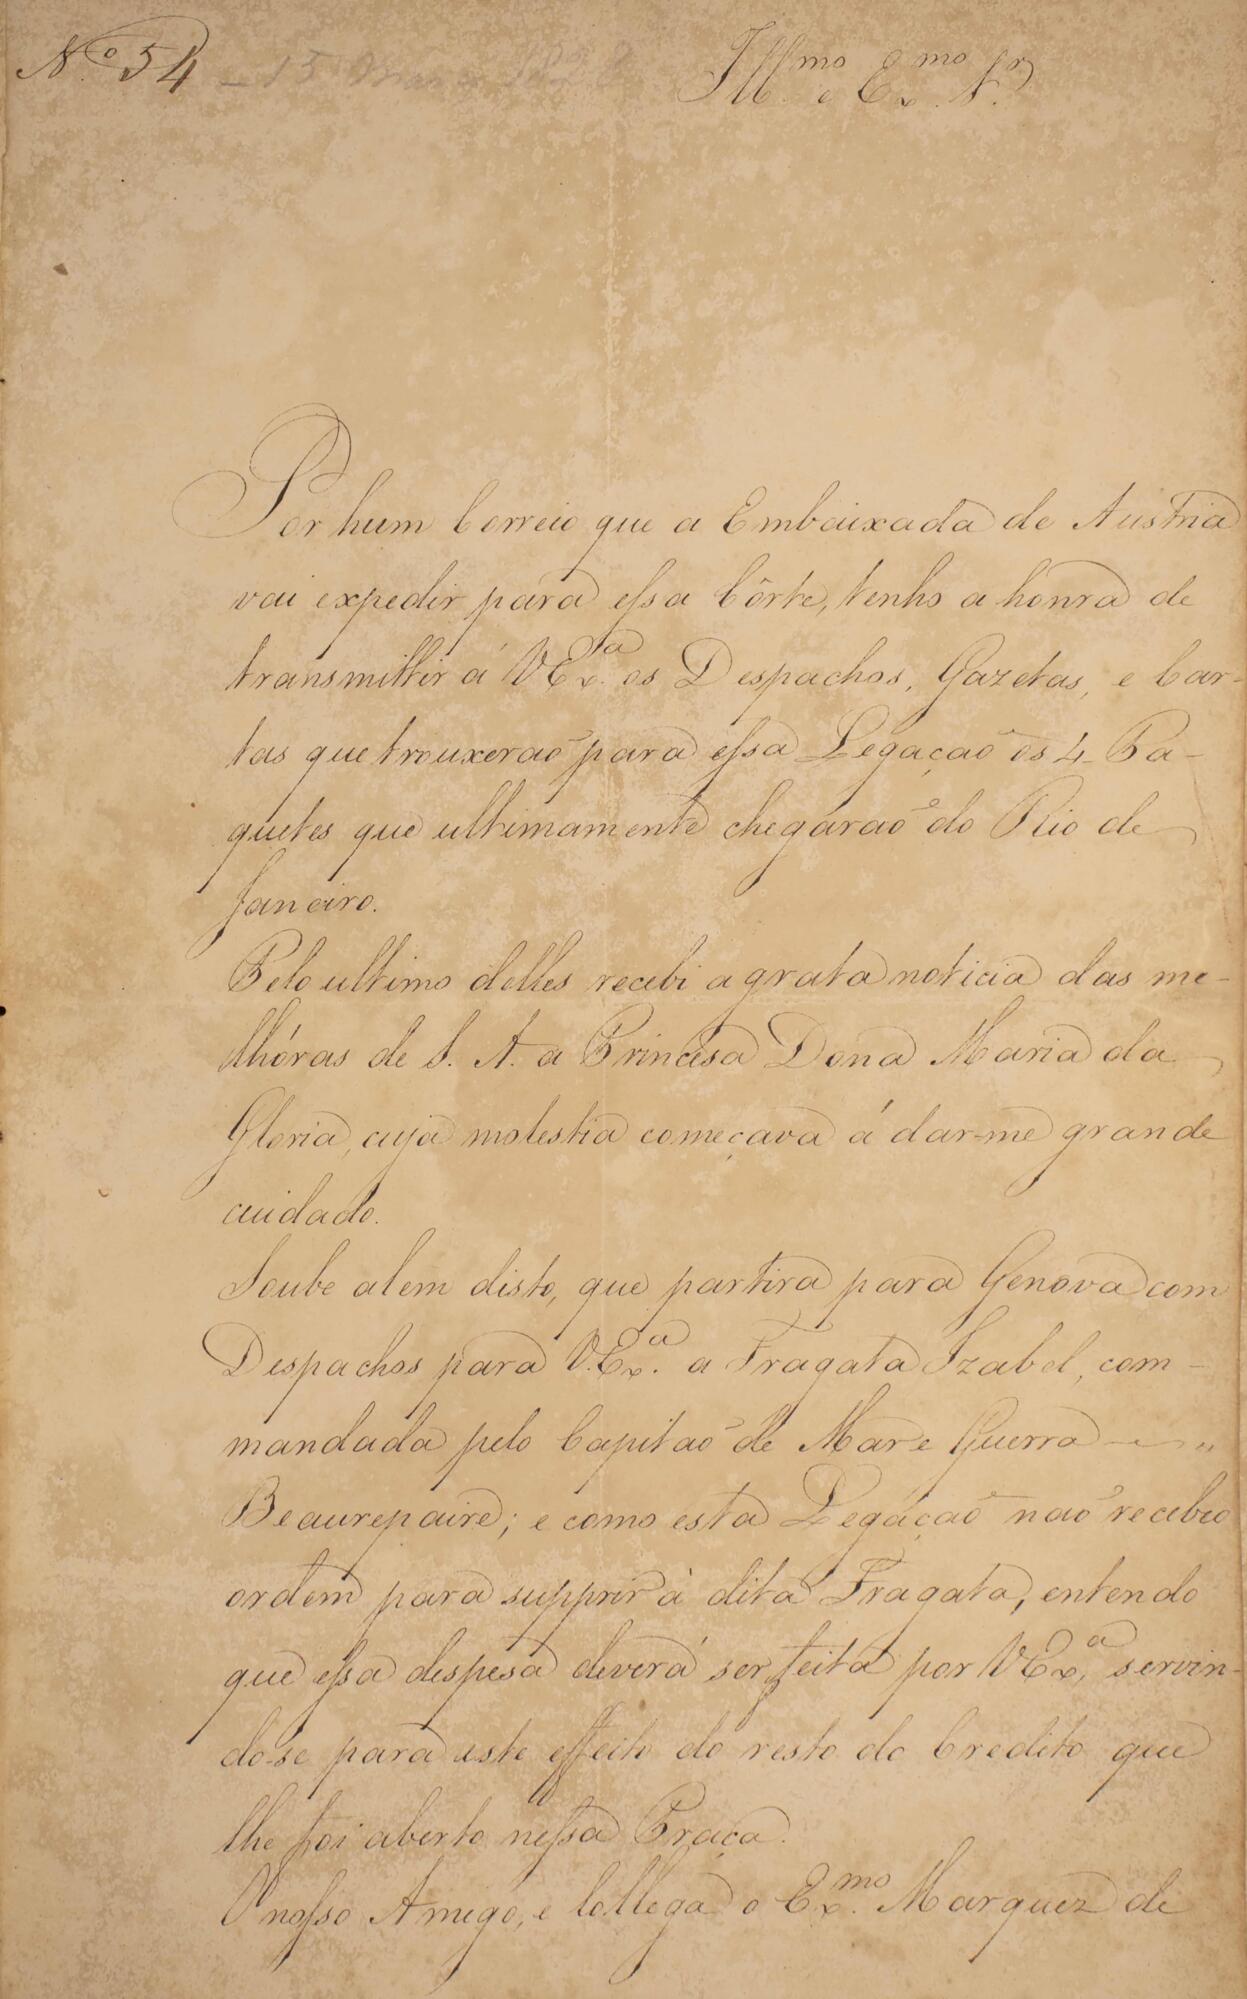 Nº 54 - 15 Março
Illmo e Exmo Sr
Por hum Correio que a Embaixada de Austria
vai expedir para essa Côrte, tenho a honra de
transmittir á VExa. os Despachos, Gazetas, e Car-
tas que trouxeraõ para essa Legaçaõ os 4 Pa-
quetes que ultimamente chegáraõ do Rio de
Janeiro.
Pelo ultimo delles recebi a grata noticia das me-
lhóras de S. A. a Princesa Dona Maria da
Gloria, cuja molestia começava á dar-me grande
cuidado.
Soube alem disto, que partira para Genova com
Despachos para V.Exa. a Fragata Izabel, com-
mandada pelo Capitaõ de Mar e Guerra — "
Beaurepaire; e como esta Legaçaõ naõ recebeo
ordem para supprir à dita Fragata, entendo
que essa despesa deverá ser feita por VExa, servin-
do-se para este effeito do resto do Credito que
lhe foi aberto nessa Praça.
O nosso Amigo, e Collega o Exmo. Marquez de